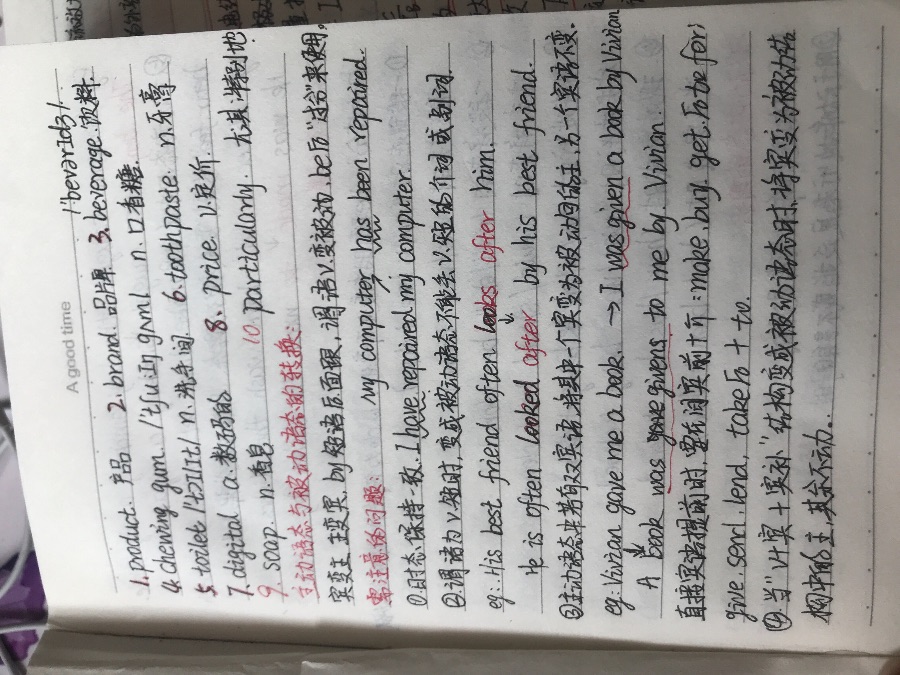 A good time
/ˈbevərɪdʒ/
1. product. 产品 2. brand. 品牌 3. beverage. 饮料.
4. chewing gum. /ˈtʃuːɪŋ gʌm/ n. 口香糖.
5 toilet /ˈtɔɪlɪt/ n. 洗手间. 6. toothpaste. n. 牙膏
7. digital a. 数码的 8. price. v. 定价.
9. soap. n. 香皂 10 particularly. 尤其; 特别地.
主动语态与被动语态的转换:
宾变主, 主变宾, by短语后面跟, 谓语v.变被动, be后"过分"来使用.
需注意的问题:
①时态保持一致. I have repaired my computer.
my computer has been repaired.
②谓语为v.短时, 变成被动语态不能丢以短的介词或副词.
eg: His best friend often looks after him.
He is often looked after by his best friend.
③主动语态中若有双宾语, 将其中一个宾变为被动间的主, 另一个宾语不变.
eg: Vivian gave me a book. → I was given a book by Vivian
A book was given to me by Vivian.
直接宾语提前时, 要在间宾前+介: make, buy, get后加for;
give. send. lend, take后 + to.
④当"v+宾+宾补"结构变成被动语态时, 将宾变为被动结
构中的主, 其余不动.